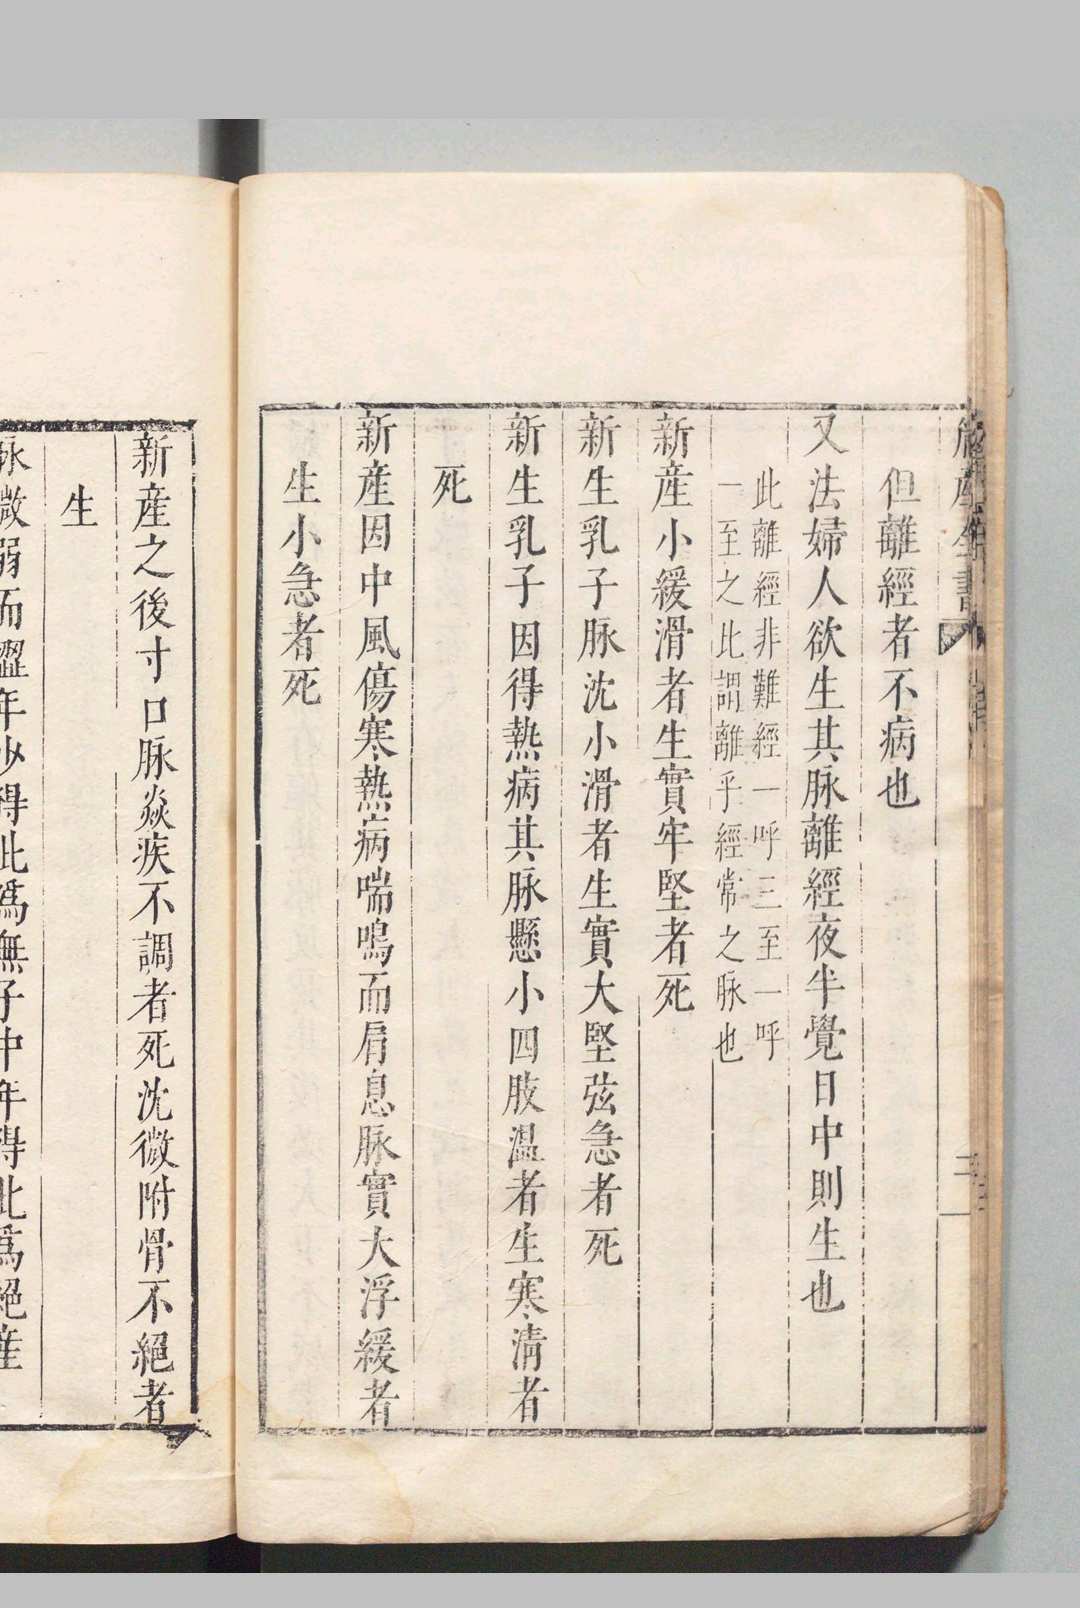 但離經者不病也
又法婦人欲生其脉離經夜半覺日中則生也
此離經非難經一呼三至一呼
一至之此謂離乎經常之脉也
新産小緩滑者生實牢堅者死
新生乳子脉沈小滑者生實大堅弦急者死
新生乳子因得熱病其脉懸小四肢温者生寒清者
死
新産因中風傷寒熱病喘鳴而肩息脉實大浮緩者
生小急者死
新産之後寸口脉焱疾不調者死沈微附骨不絕者
生
脉微弱而澀年少得此爲無子中年得此爲絕産